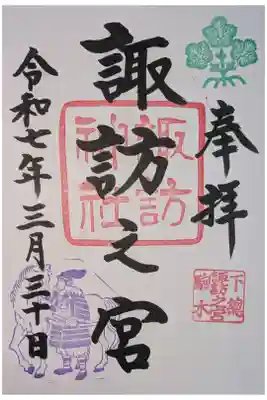 奉拝
諏訪之宮
諏訪神社
令和七年三月三十日
下総
諏訪之宮
駒木